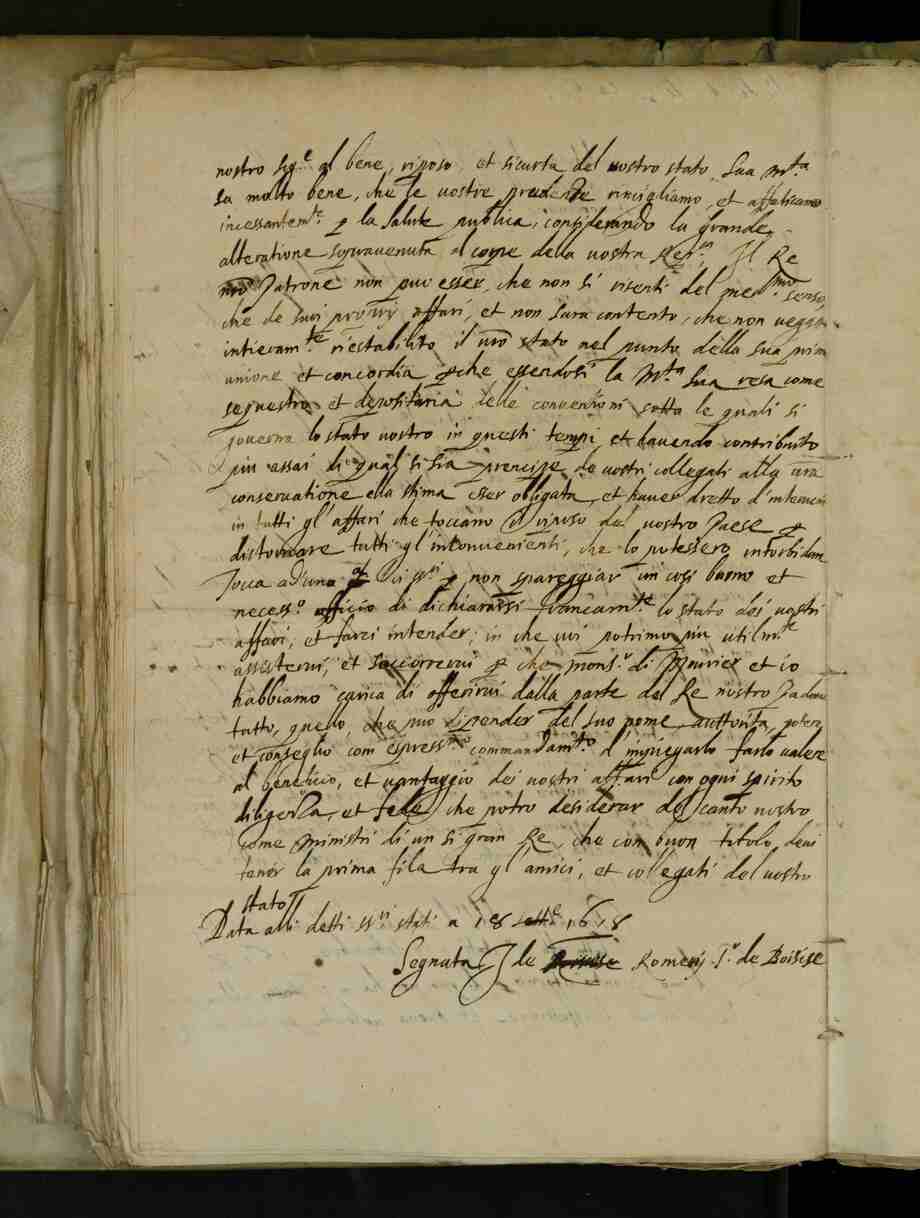 nostro sig.e al bene, riposo, et sicurta del vostro stato. Sua M.ta
sa molto bene, che le vostre prudenze invigilano, et affaticano
incessantem.te p la salute publica, considerando la grande
alteratione sopravenuta al corpe della vostra Rep.ca Il Re
nro Patrone non puo esser, che non si risenti del med.mo senso,
che de suoi proprij affari, et non sara contento, che non vegga
intieram.te ristabilito il vro stato nel punto della sua prima
unione et concordia pche essendosi la M.ta sua resa come
sequestro et depositaria delle conventioni sotto le quali si
governa lo stato vostro in questi tempi, et havendo contribuito
piu assai di qual si sia prencipe de vostri collegati alla vra
conservatione ella stima esser obligata, et haver dretto d'intervenir
in tutti gl'affari che toccano il riposo del vostro Paese p
distornare tutti gl'inconvenienti, che lo potessero intorbidare
Tocca ad'una ss.ri p non spareggiar un cosi buono et
necess.o officio di dichiararsi francam.te lo stato dei vostri
affari, et farci intender, in che voi potrimo piu utilm.te
assistervi, et soccorrervi p che mons.r di Mourier et io
habbiamo carica di offerirvi dalla parte del Re nostro Padone
tutto, quello, che puo dipender del suo nome auttorita, potere,
et conseglio com espress.mo commandam.to d'impiegarlo farlo valere
al beneficio, et vantaggio dei vostri affari con ogni spirito
diligenza, et fede che potro desiderar del canto vostro
come Ministri di un si gran Re, che con buon titolo devi
tener la prima fila tra gl'amici, et collegati del vostro
stato
Data alli detti ss.ri stati a 18 sett.e 1618
Segnata J de Romerij S.r de Boisise